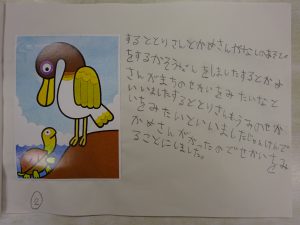 するととりさんとかめさんがなにの
をするか
しをしましたするとかめ
さんがまちのせかいをみたいなと
いいましたするととりさんもうみのせか
いをみたいといいましたじゃんけんで
かめさんがかったのでせかいをみ
ることにしました。
2